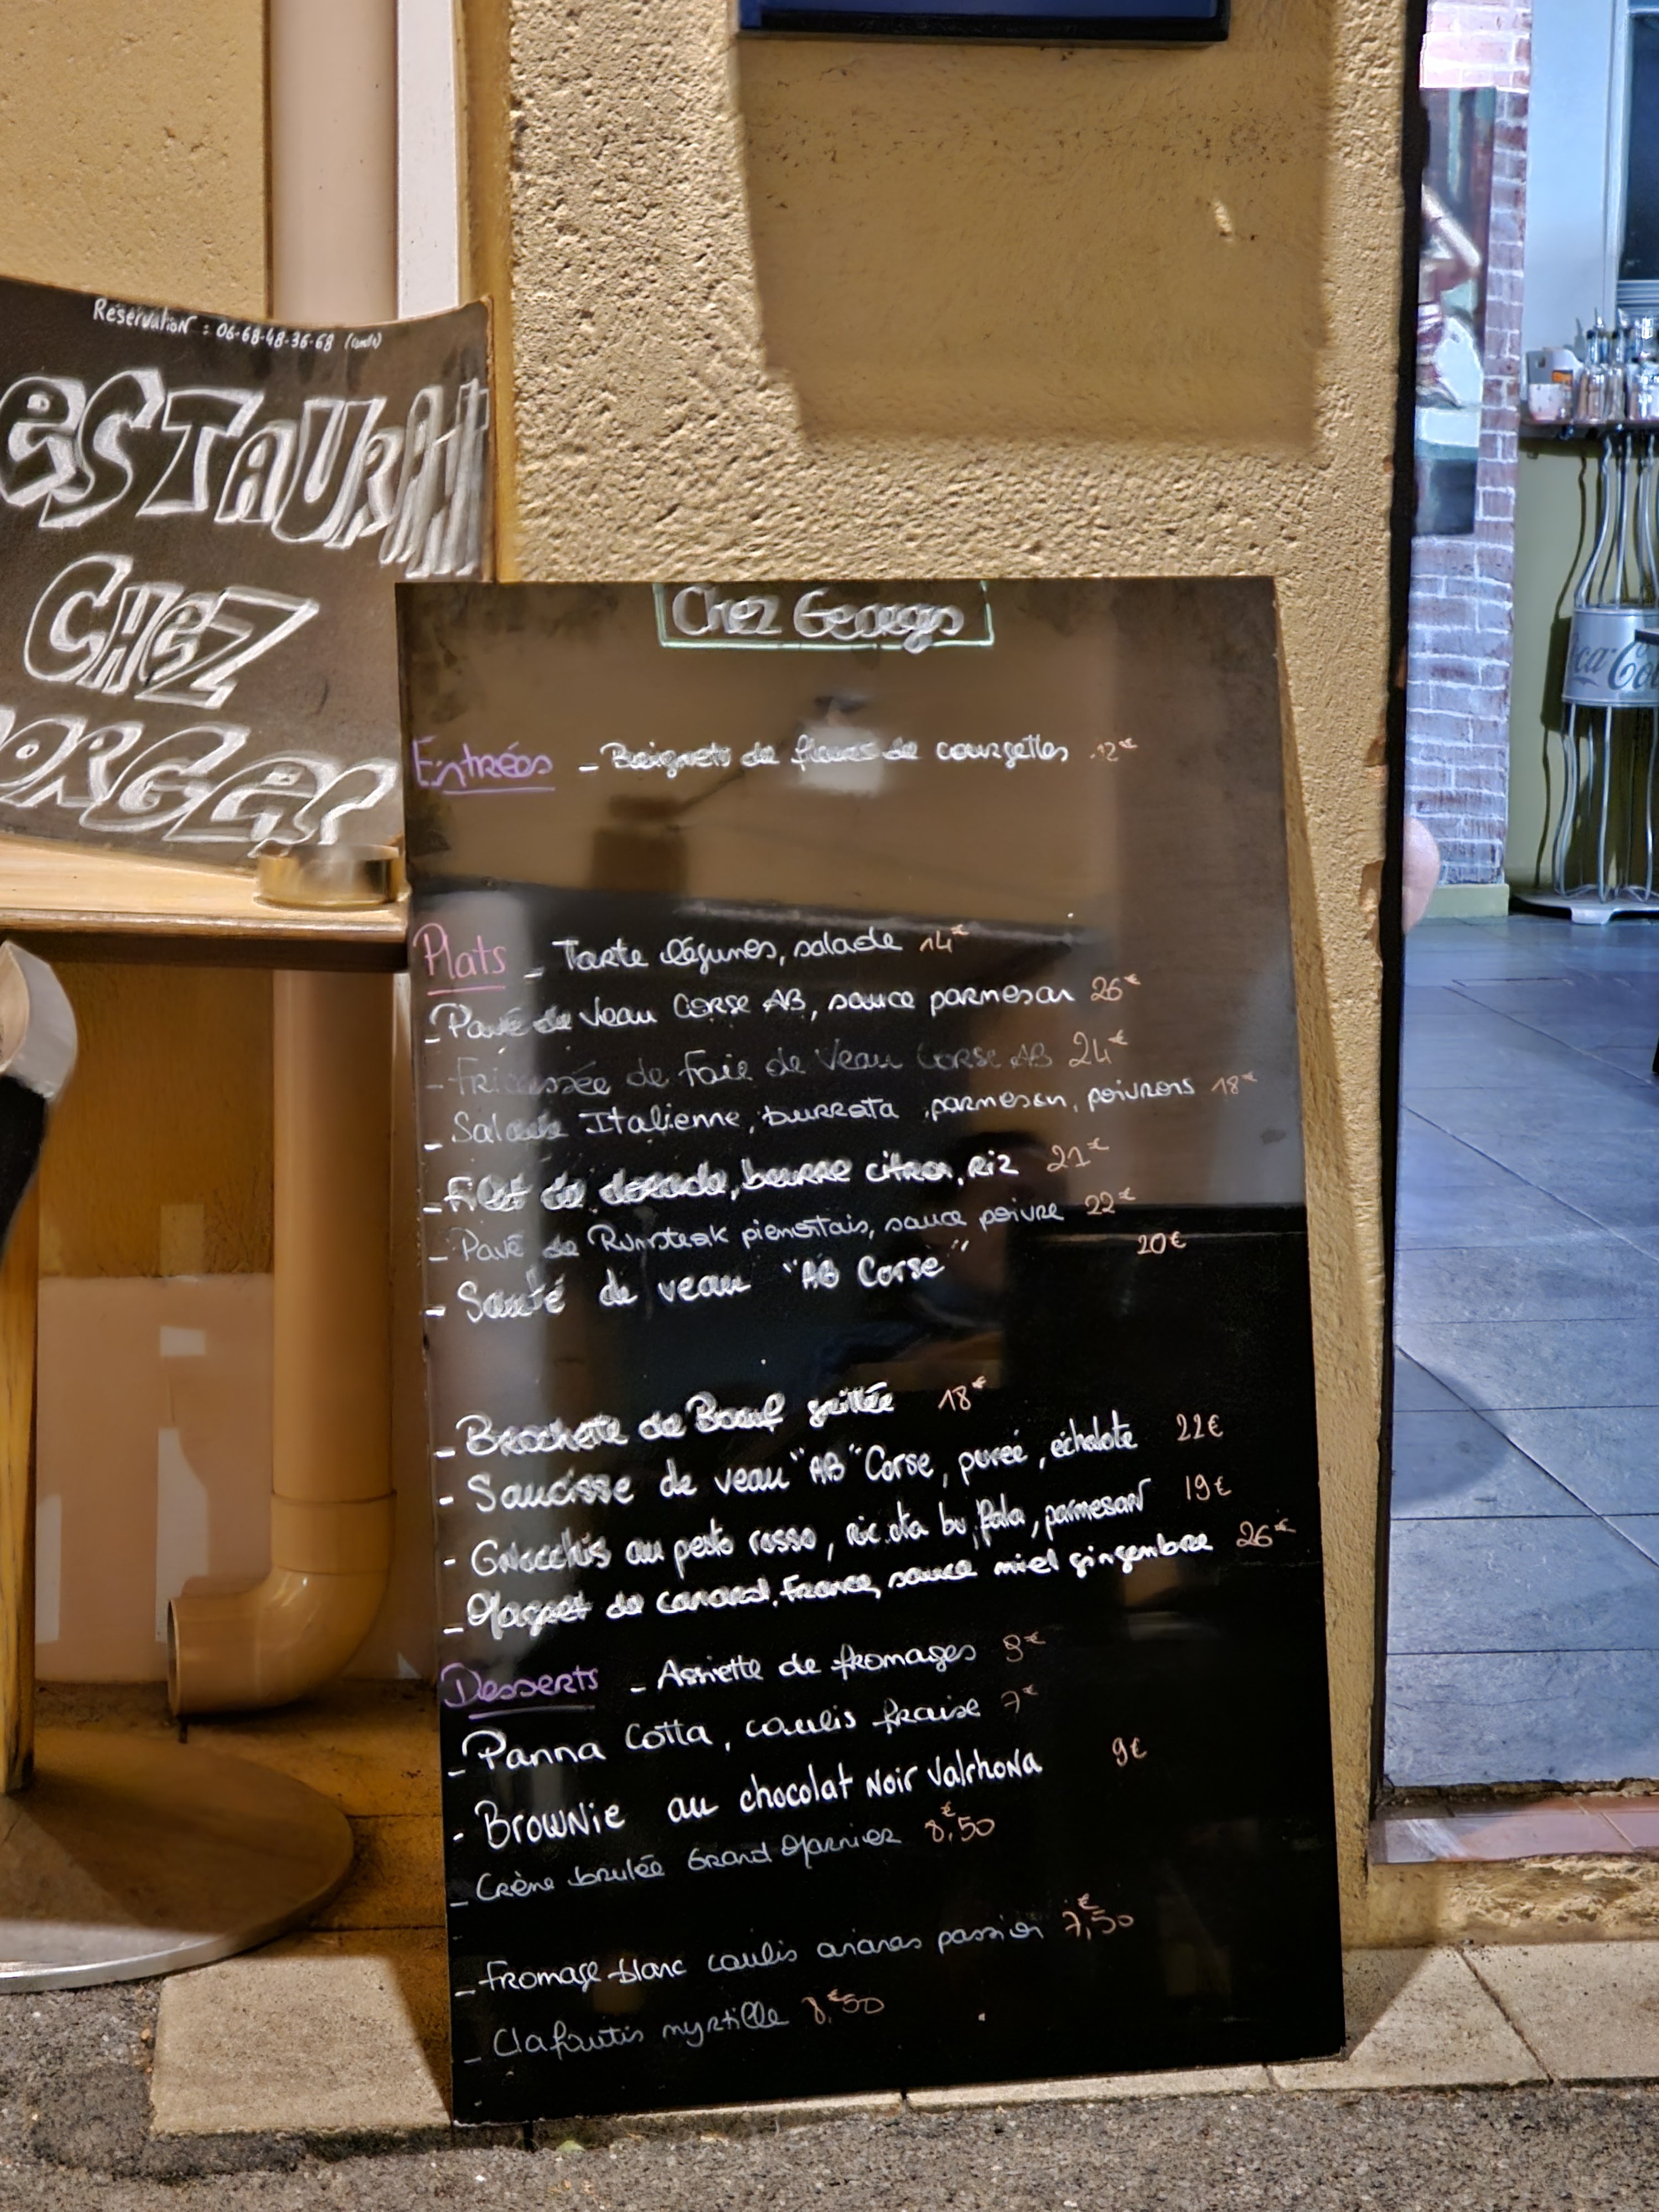 Reservation : 06-68-48-36-68
ESTAURA
CHEZ
ORGES
Chez Georges
Entrées - Beignets de fleurs de courgettes 12€
Plats - Tarte légumes, salade 14€
- Pavé de veau Corse AB, sauce parmesan 26€
- Fricassée de Foie de Veau Corse AB 24€
- Salade Italienne, burrata, parmesan, poivrons 18€
- Filet de dorade, beurre citron, riz 21€
- Pavé de Rumsteak piemontais, sauce poivre 22€
- Sauté de veau "AB Corse" 20€
- Brochette de Boeuf grillée 18€
- Saucisse de veau "AB" Corse, pureé, échalote 22€
- Gnocchis au pesto rosso, ricota bufala, parmesan 19€
- Magret de canard, France, sauce miel gingembre 26€
Desserts - Assiette de fromages 9€
- Panna Cotta, coulis fraise 7€
- Brownie au chocolat Noir Valrhona 9€
- Crème brulée Grand Marnier 8,€50
- Fromage blanc coulis ananas passion 7,€50
- Clafoutis myrtille 8,€50
ca Co